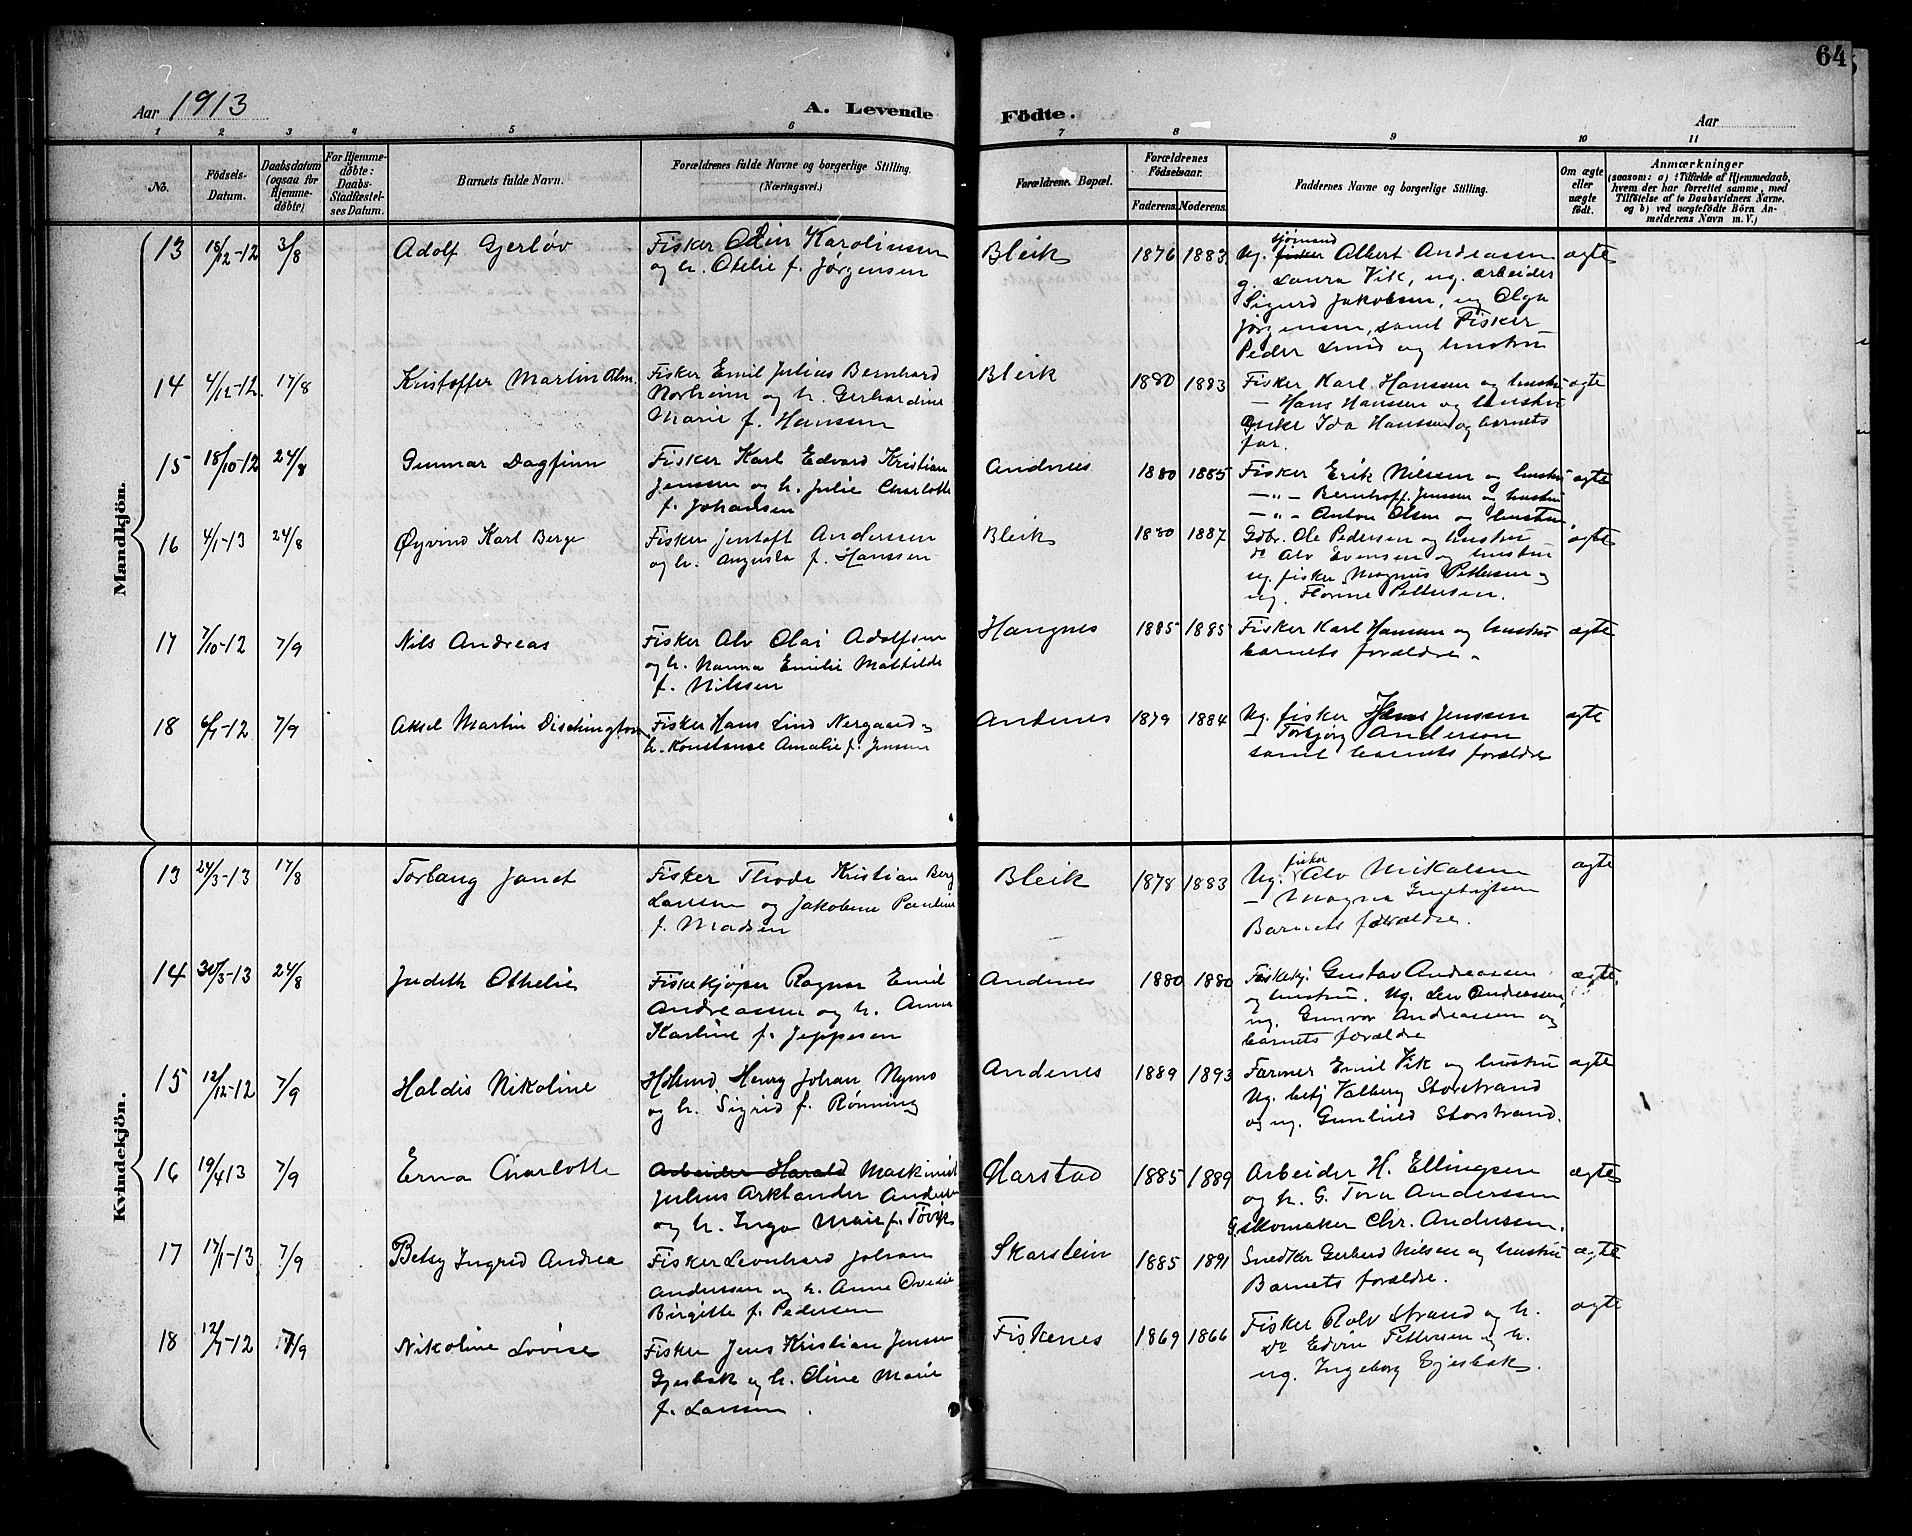 64
Aar 1913
A. Levende Födte.
Aar
1 2 3 4 5 6 7 8 9 10 11
No.
Födsels-Datum.
Daabsdatum (ogsaa for Hjemme-döbte)
For Hjemme-döbte: Daabs-Stadfæstel-ses Datum.
Barnets fulde Navn.
Forældrenes fulde Navne og borgerlige Stilling. (Næringsvei.)
Forældrenes Bopæl.
Forældrenes Födselsaar.
Faderens. Moderens.
Faddernes Navne og borgerlige Stilling.
Om ægte eller uægte födt.
Anmærkninger
(saasom: a) i Tilfælde af Hjemmedaab,
hvem der har forrettet samme, med
Tilföielse af to Daabsvidners Navne.
og b) ved uægtefödte Börn An-
melderens Navn m. V.)
Mandkjön.
13 18/12-12 3/8 Adolf Gerløv
Fisker Odin Karolinsen
og h. Otelie f. Jørgensen
Bleik 1876 1883
Ug. fisker sjømand Albert Andreassen
g. Laura Vik, ug. arbeider
Sigurd Jakobsen, ug Olga
Jørgensen, samt Fisker
Peder Lund og hustru
ægte
14 4/12-12 17/8 Kristoffer Martin Alm.
Fisker Emil Julius Bernhard
og h. Gerhardine
Marie f. Hanssen
Bleik 1880 1883
Fisker Karl Hanssen og hustru
— Hans Hanssen og hustru
Ida Hanssen og barnets
far.
ægte
15 18/10-12 24/8 Gunnar Dagfinn
Fisker Karl Edvard Kristian
Jenssen og h. Julie Charlotte
f. Johansen
Andenes 1880 1885
Fisker Erik Nilssen og hustru
—"— Bernhoff Jenssen og hustru
—"— Anton Olsen og hustru
ægte
16 4/1-13 24/8 Øyvind Karl Berge
Fisker Jentoft Andersen
og h. Augusta f. Hanssen
Bleik 1880 1887
Gdbr. Ole Pedersen og hustru
do Alv Evensen og hustru
ug. fisker Magnus Pettersen og
ug. Pettersen.
ægte
17 7/10-12 7/9 Nils Andreas
Fisker Alv Olai Adolfsen
og h. Nanna Emilie Mathilde
f. Nilssen
Haugnes 1885 1885
Fisker Karl Hansen og hustru
barnets forældre.
ægte
18 6/7-12 7/9 Aksel Martin Dischington
Fisker Hans Lind Nergaard og
h. Konstanse Amalie f. Jensen
Andenes 1879 1884
Ug. fisker Jenssen
— Torbjørg Anderson
samt barnets forældre
ægte
Kvindekjön.
13 24/3-13 17/8 Torlaug Janet
Fisker Thode Kristian Berg
Larssen og Jakobine Pauline
f. Madsen
Bleik 1878 1883
Ug. fisker Alv Mikalsen
— Magna Ingebrigtsen
Barnets forældre.
ægte
14 30/3-13 24/8 Judith Othelie
Fiskekjøper Ragnar Emil
Andreassen og h. Anna
Karline f. Jeppesen
Andenes 1880 1880
Fiskekj. Gustav Andreassen
og hustru. Ug. Andreassen,
ug. Gunvor Andreassen og
barnets forældre
ægte
15 12/12-12 7/9 Haldis Nikoline
Henry Johan Nymo
og h. Sigrid f. Rønning
Andenes 1889 1893
Farmer Emil Vik og hustru
Ug. betj Valberg Storstrand
og ug. Gunhild Storstrand.
ægte
16 19/4 13 7/9 Erna Charlotte
Arbeider Harald Maskinist
Julius Arklander Andersen
og h. Inga Marie f. Tøvik
Harstad 1885 1889
Arbeider H. Ellingsen
og h. G. Tora Anderssen
G. skomaker Chr. Andersen.
ægte
17 17/1-13 7/9 Betsy Ingrid Andrea
Fisker Leonhard Johan
Anderssen og h. Anne Ovedie
Birgitte f. Pedersen
Skarstein 1885 1891
Snedker Gerhard Nilsen og hustru
Barnets forældre.
ægte
18 12/7-12 17/9 Nikoline Lovise
Fisker Jens Kristian Jensen
Gjesbak og h. Oline Marie
f. Larssen.
Fiskenes 1869 1866
Fisker Rolv Strand og h.
do Edvin Pettersen og h.
ug. Ingeborg Gjesbak.
ægte